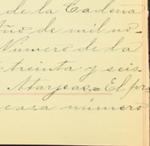 de la Cadena
Año de mil no-
Número de la
treinta y seis
Atarjeas. El pr
casa número